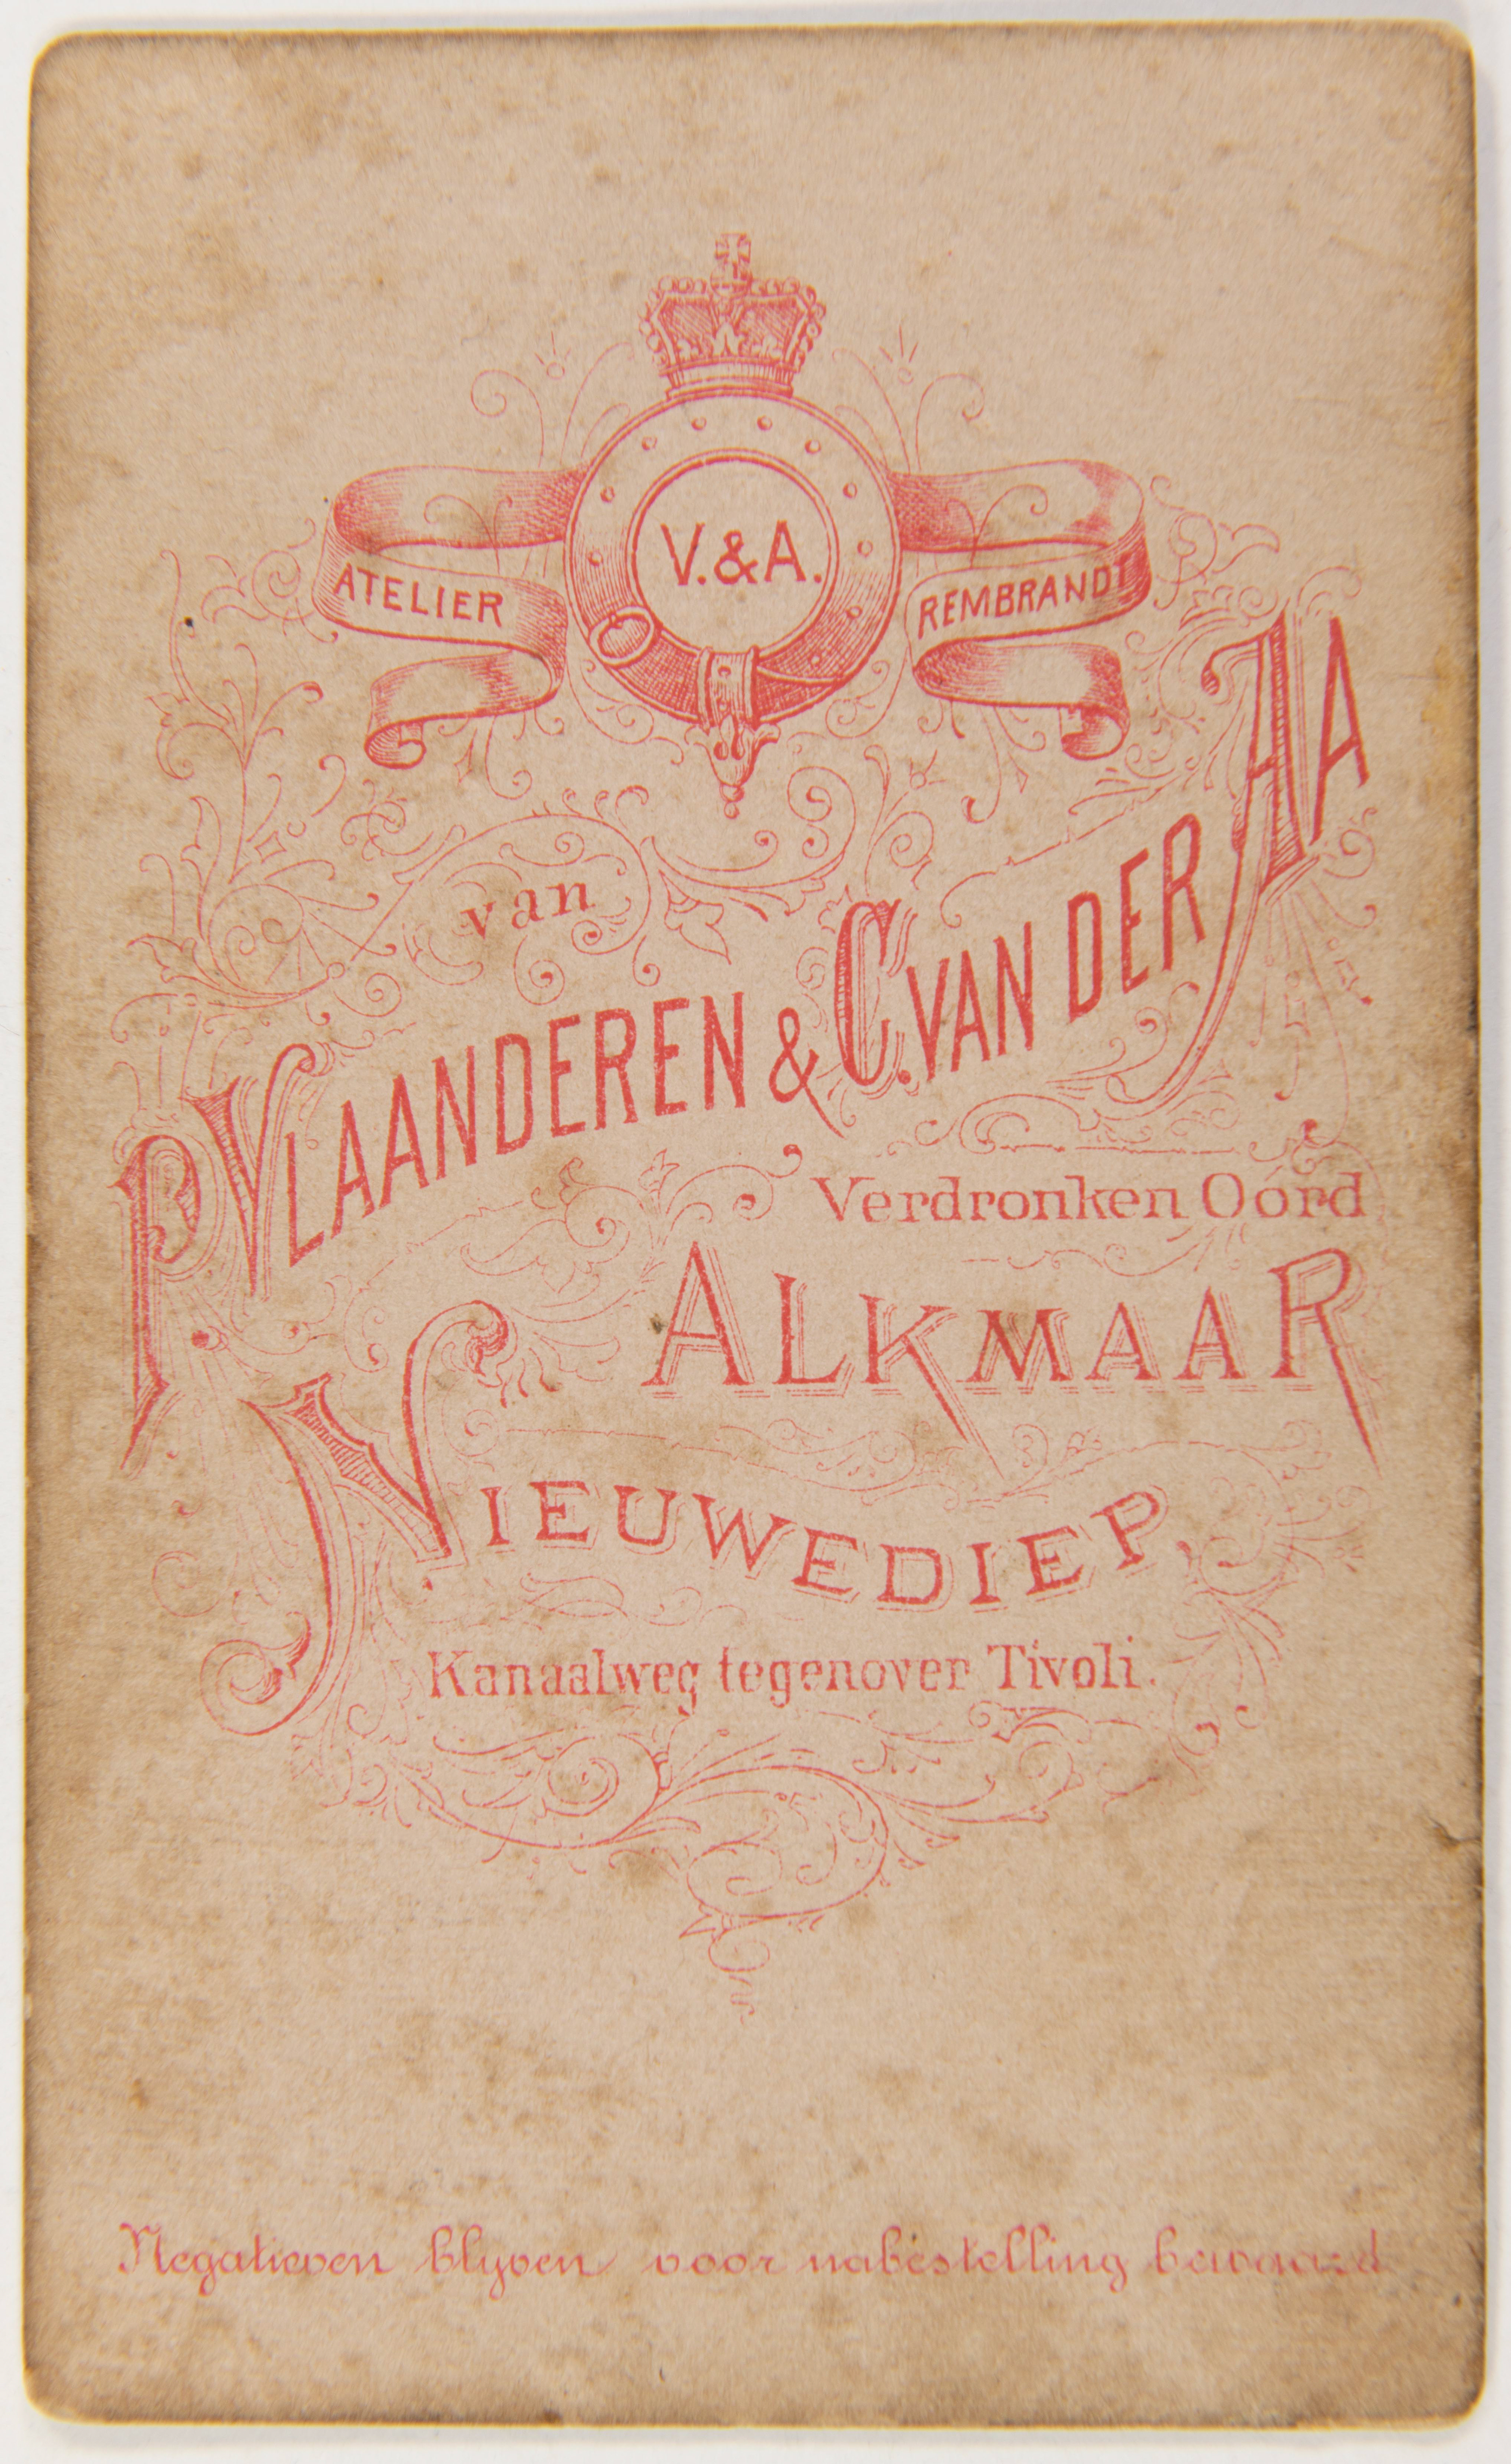 V.&A.
ATELIER REMBRANDT
van
P. VLAANDEREN & C. VAN DER AA
Verdronken Oord
ALKMAAR
NIEUWEDIEP.
Kanaalweg tegenover Tivoli.
Negatieven blyven voor nabestelling bewaard